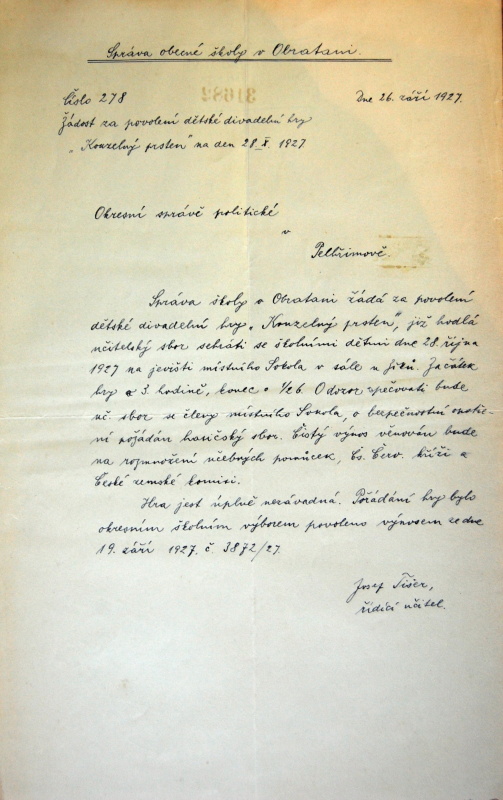 Správa obecné školy v Obratani.
Číslo 278
Dne 26. září 1927.
Žádost za povolení dětské divadelní hry
„Kouzelný prsten" na den 28. X. 1927
Okresní správě politické
v
Pelhřimově.
Správa školy v Obratani žádá za povolení
dětské divadelní hry „Kouzelný prsten", již hodlá
učitelský sbor sehráti se školními dětmi dne 28. října
1927 na jevišti místního Sokola v sále u Začátek
hry o 3. hodině, konec o ½6. O dozor pečovati bude
uč. sbor se členy místního Sokola, o bezpečnostní opatře-
ní požádán hasičský sbor. Čistý výnos věnován bude
na rozmnožení učebných pomůcek, Čs. Červ. kříži a
České zemské komisi.
Hra jest úplně nezávadná. Pořádání hry bylo
okresním školním výborem povoleno výnosem ze dne
19. září 1927. č. 3872/27.
Josef Tišer,
řídící učitel.